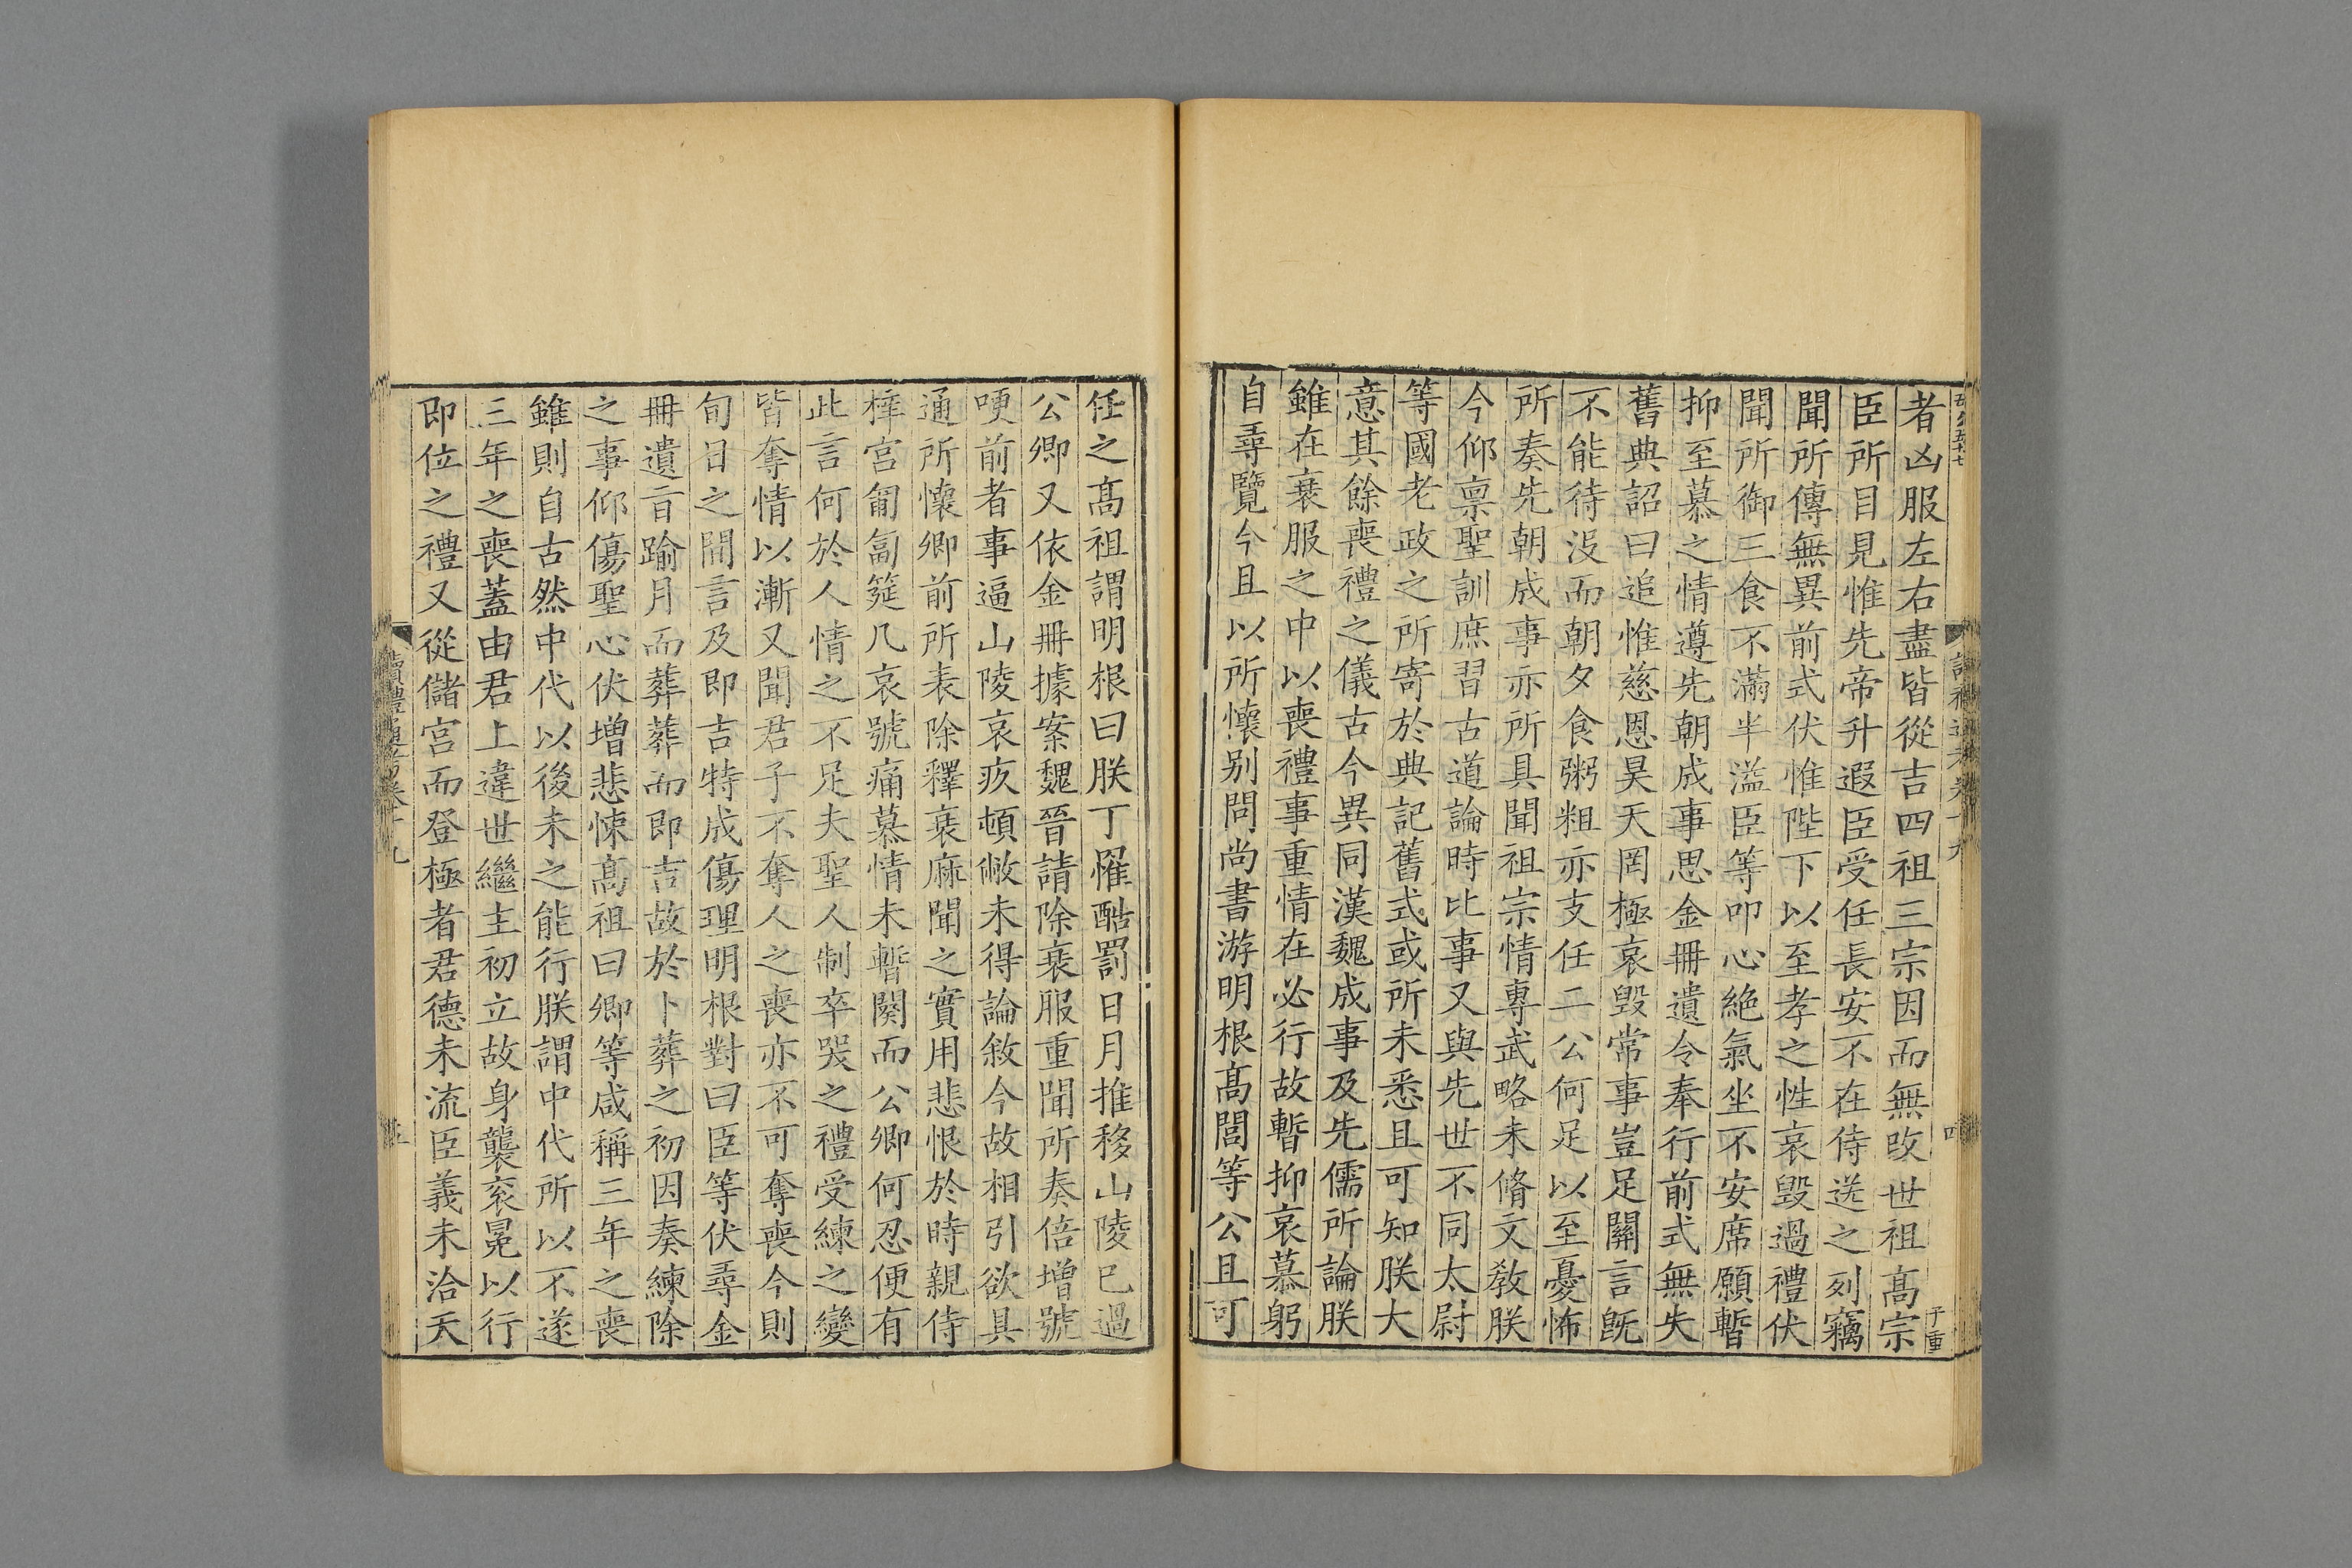 者凶服左右盡皆從吉四祖三宗因而無攺世祖髙宗
臣所目見惟先帝升遐臣受任長安不在侍送之列竊
聞所傳無異前式伏惟陛下以至孝之性哀毀過禮伏
聞所御三食不滿半溢臣等叩心絶氣坐不安席願暫
抑至慕之情遵先朝成事思金冊遺令奉行前式無失
舊典詔曰追惟慈恩昊天罔極哀毀常事豈足關言旣
不能待没而朝夕食粥粗亦支任二公何足以至憂怖
所奏先朝成事亦所具聞祖宗情專武略未脩文敎朕
今仰禀聖訓庶習古道論時比事又與先世不同太尉
等國老政之所寄於典記舊式或所未悉且可知朕大
意其餘喪禮之儀古今異同漢魏成事及先儒所論朕
雖在衰服之中以喪禮事重情在必行故暫抑哀慕躬
自尋覽今且以所懷别問尚書游明根髙閭等公且可
任之髙祖謂明根曰朕丁罹酷罰日月推移山陵已過
公卿又依金冊據案魏晉請除衰服重聞所奏倍增號
哽前者事逼山陵哀疚頓敝未得論敘今故相引欲具
通所懷卿前所表除釋衰麻聞之實用悲恨於時親侍
梓宫匍匐筵几哀號痛慕情未暫闋而公卿何忍便有
此言何於人情之不足夫聖人制卒哭之禮受練之變
皆奪情以漸又聞君子不奪人之喪亦不可奪喪今則
旬日之間言及即吉特成傷理明根對曰臣等伏尋金
冊遺㫖踰月而葬葬而即吉故於卜葬之初因奏練除
之事仰傷聖心伏增悲悚髙祖曰卿等咸稱三年之喪
雖則自古然中代以後未之能行朕謂中代所以不遂
三年之喪蓋由君上違世繼主初立故身襲衮冕以行
即位之禮又從儲宫而登極者君德未流臣義未洽天
讀禮通考卷十九